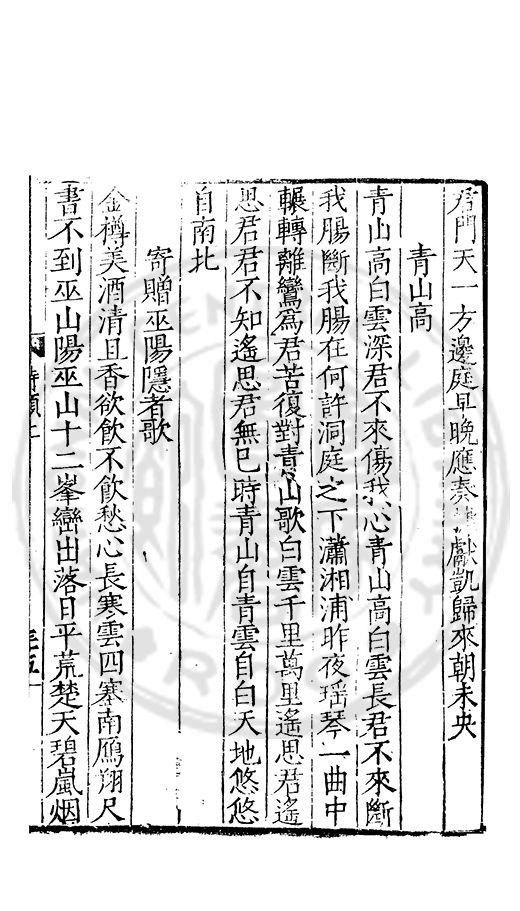 君門天一方邊庭早晚應奏 獻凱歸來朝未央
青山高
青山高白雲深君不來傷我心青山高白雲長君不來斷
我腸斷我腸在何許洞庭之下瀟湘浦昨夜瑶琴一曲中
輾轉離鸞為君苦復對青山歌白雲千里萬里遙思君遙
思君君不知遙思君無已時青山自青雲自白天地悠悠
自南北
寄贈巫陽隱者歌
金樽美酒清且香欲飲不飲愁心長寒雲四塞南鴈翔尺
書不到巫山陽巫山十二峯巒出落日平荒楚天碧嵐烟